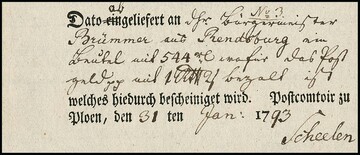 No 3.
Dato eingeliefert an Bürgermeister
Brümmer aus Rendsburg ein
Beutel mit 544 wofür das Post
geld mit bezalt ist
welches hiedurch bescheiniget wird. Postcomtoir zu
Ploen, den 31 ten Jan: 1793
Scheelen